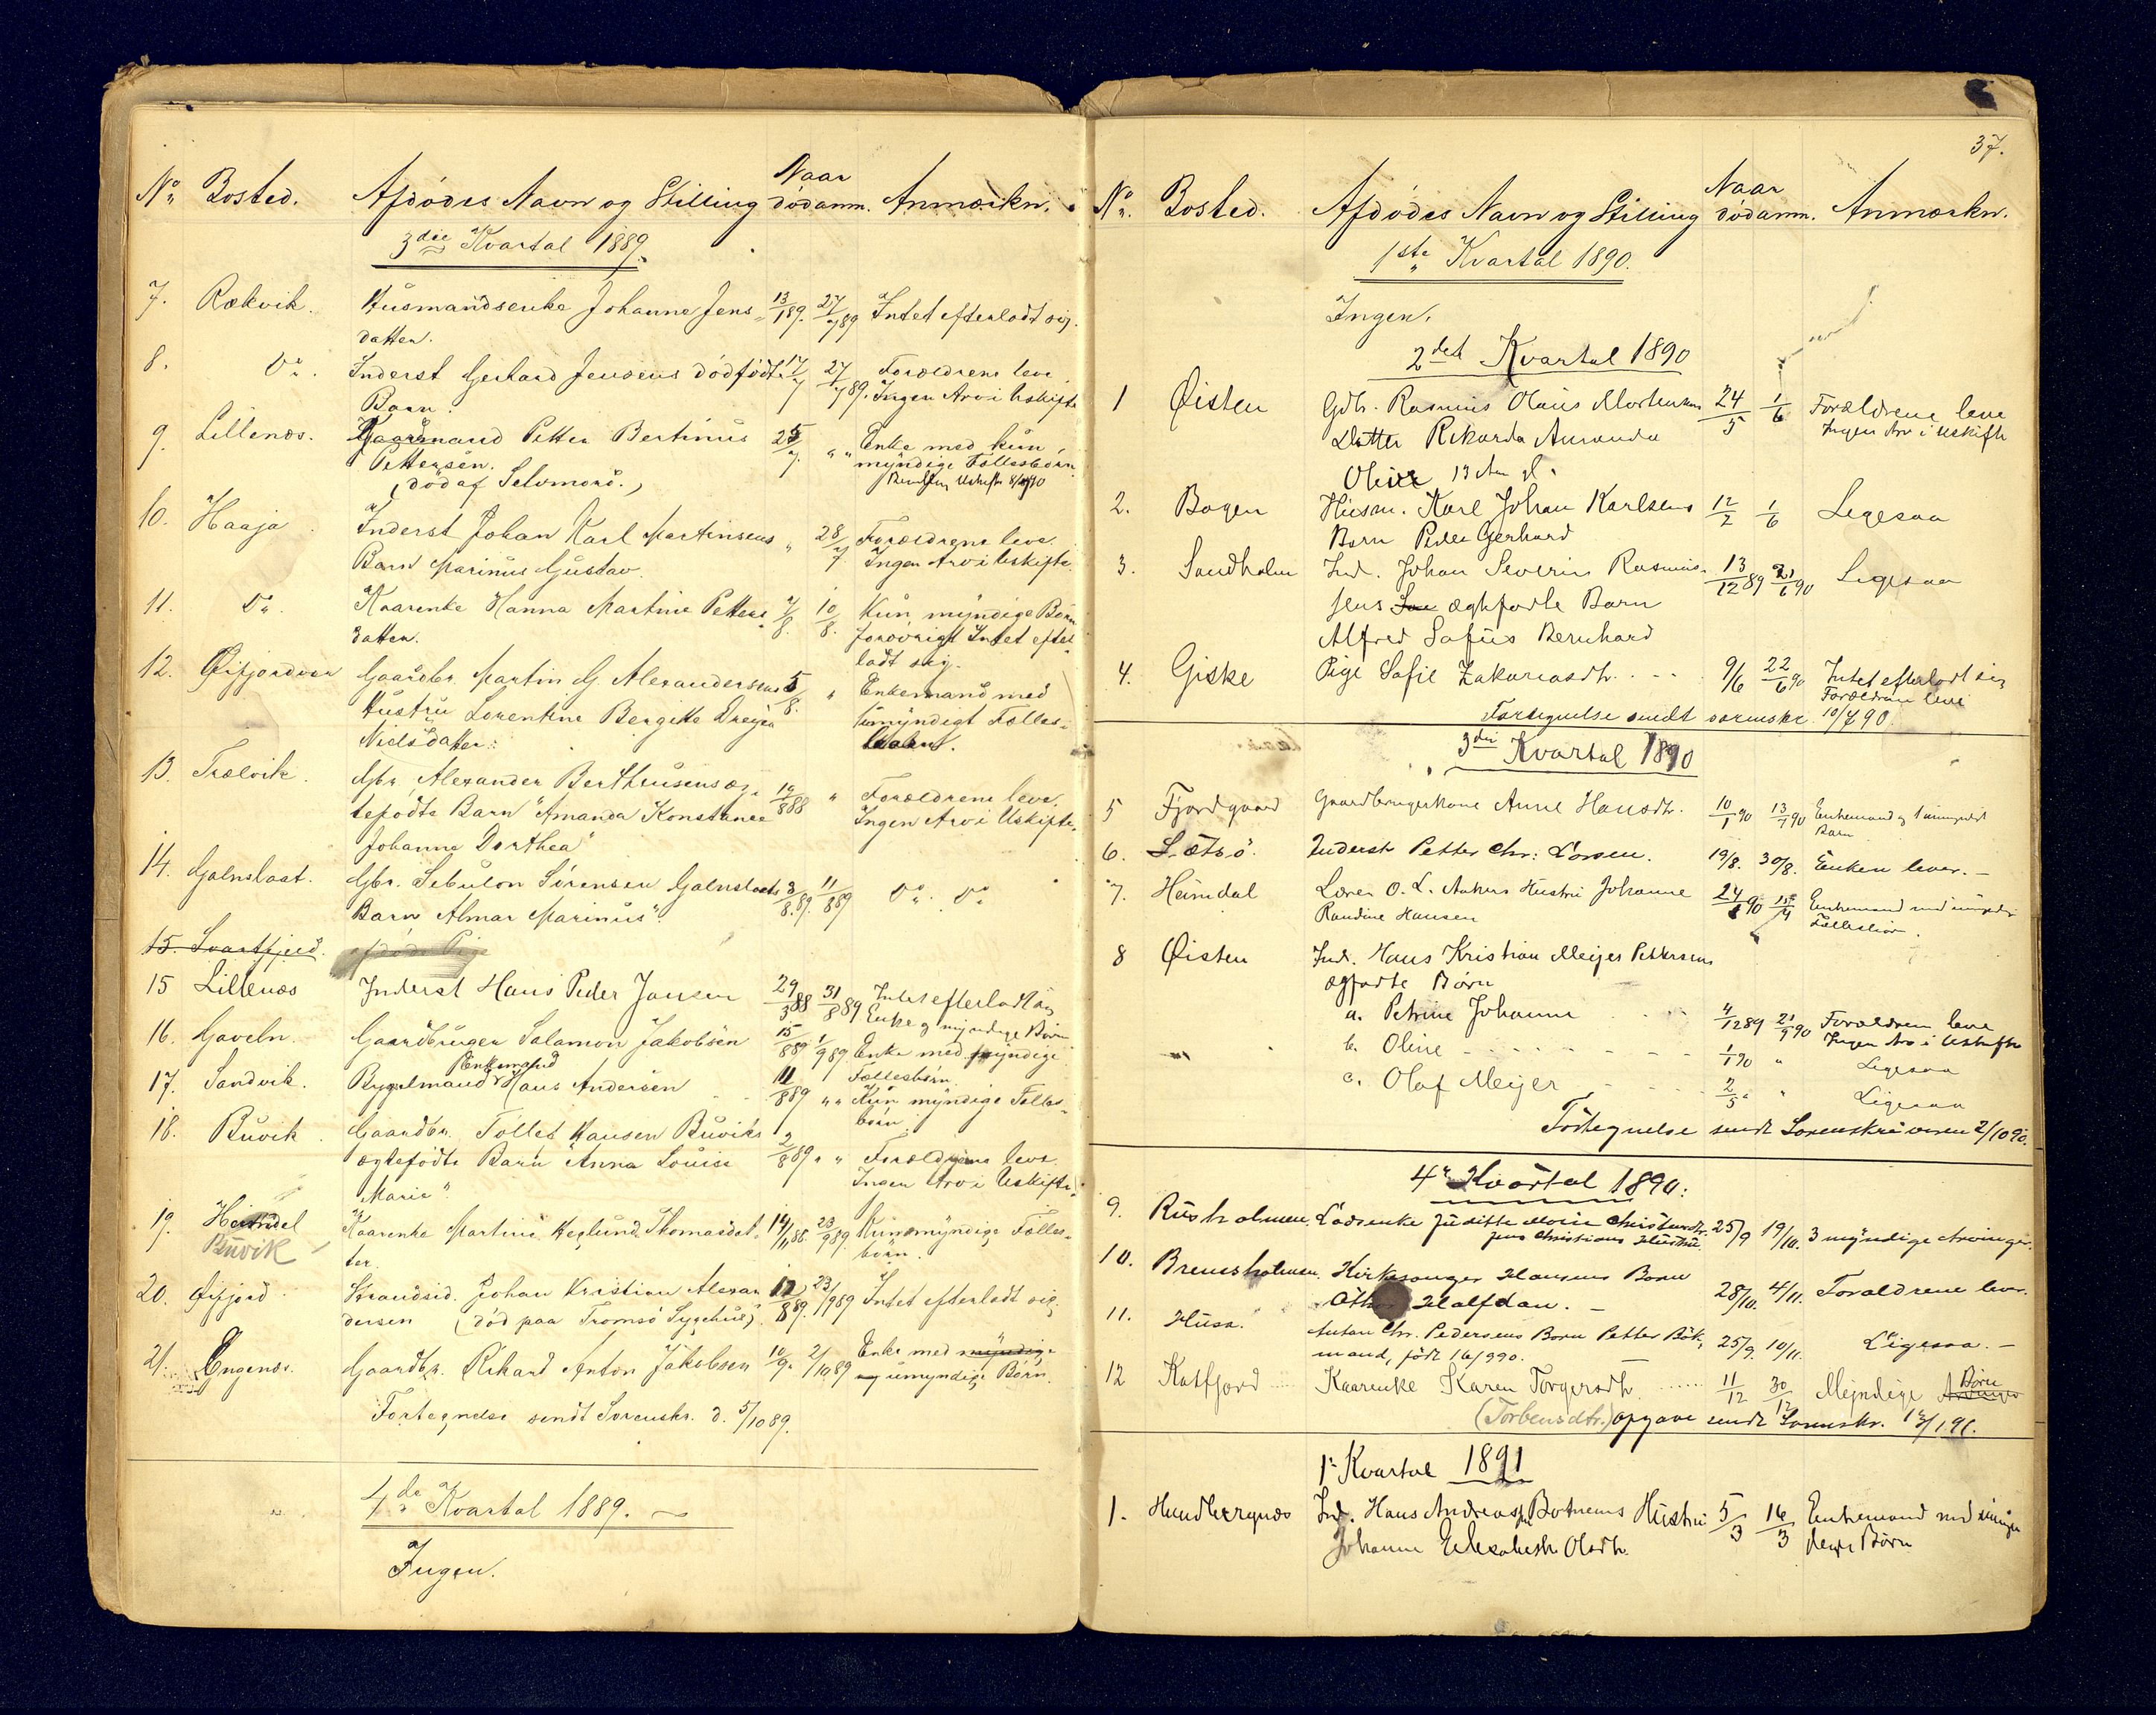 No. Bosted. Afdödes Navn og Stilling Naar dödanm. Anmærkn.
3die Kvartal 1889.
7. Rækvik. Husmandsenke Johanne Jens- 13/1 89. 27/7 89 Intet efterladt sig.
datter.
8. Do. Inderst Gerhard Jensens dödfödte 17/7 27/7 89. Forældrene leve.
Barn. Ingen Arv i Uskifte
9. Lillenæs. Gaardmand Petter Bertinus 25/7. " " Enke med kun
Pettersen. myndige Fællesbörn.
(död af Selvmord.)
10. Haaja. Inderst Johan Karl Martinsens " 28/7 Forældrene leve.
Barn Marinus Gustav. Ingen Arv i Uskifte.
11. Do. Kaarenke Hanna Martine Petters- 7/8. 10/8. Kun myndige Börn
datter. forövrigt Intet efter-
ladt sig.
12. Öifjordvær Gaardbr. Martin G. Alexandersens 5/8. " Enkemand med
Hustru Lorentine Bergitte Dreyer umyndigt Fælles-
Nielsdatter. barn.
13. Trælvik. Gbr. Alexander Bertheusens æg- 19/8 88 " Forældrene leve.
tefödte Barn "Amanda Konstance Ingen Arv i Uskifte.
Johanna Dorthea"
14. Galnslaat. Gbr. Sebulon Sörensen Galnslaats 3/8. 89. 11/8 89 Do. Do.
Barn Almar Marinus".
15. Svartfjeld.
15 Lillenæs Inderst Hans Peder Jansen 29/3 88 31/8 89 Intet efterladt sig
Enke og myndige Börn
16. Gaveln. Gaardbruger Salamon Jakobsen 15/8 89 1/9 89 Enke med myndige
Fællesbörn.
17. Sandvik. Bygselmand Enkemand Hans Andersen 11/8 89 " " Kun myndige Fælles-
börn.
18. Buvik. Gaardbr. Tollef Hansen Buviks 2/8 89 " " Forældrene leve.
ægtefödte Barn "Anna Louise Ingen Arv i Uskifte.
Marie".
19. Heimdal Kaarenke Martine Heglund Thomasdat- 14/11 88. 23/9 89. Kun myndige Fælles-
Buvik ter. börn.
20. Öifjord. Strandsid. Johan Kristian Alexan- 12/8 89. 23/9 89 Intet efterladt sig.
dersen (död paa Tromsö Sygehus).
21. Engenæs. Gaardbr. Rikard Anton Jakobsen 10/9. 2/10 89 Enke med myndige
og umyndige Börn.
Fortegnelse sendt Sorenskr. d. 5/10 89.
4de Kvartal 1889.
Ingen.
37.
No. Bosted. Afdödes Navn og Stilling Naar dödanm. Anmærkn.
1ste Kvartal 1890.
Ingen.
2det Kvartal 1890
1 Øisten Gdb. Rasmus Olaus Mortensens 24/5 1/6 Forældrene leve
Datter Rikarda Amanda Ingen Arv i Uskifte
Oline 13 Aar gl.
2. Bogen Husm. Karl Johan Karlsens 12/2 1/6 Ligesaa
Barn Peder Gerhard
3. Sandholm Ind. Johan Severin Rasmus- 13/12 89 21/6 90 Ligesaa
sens ægtefødte Barn
Alfred Lafius Bernhard
4. Giske Pige Sofie Zakariasdtr. 9/6 22/6 90 Intet efterladt sig
Forældren leve
Fortegnelse sendt sorenskr. 10/7 90.
3die Kvartal 1890
5 Fjordgaard Gaardbrugerkone Anne Hansdtr. 10/1 90 13/7 90 Enkemand og 1 umyndigt
Barn
6. Sætsö. Inderst Petter Chr: Larsen. 19/8. 30/8. Enken lever. -
7. Heimdal Lærer O. L. Aakres Hustru Johanne Enkemand med umyndige
Raudine Hansen Fællesbörn.
8 Øisten Ind. Hans Kristian Meijer Pettersens
ægfødte Børn
a. Petrine Johanne 4/12 89 21/9 90 Forældren leve
Ingen Arv i Uskifte
b. Oline 1/1 90 " Ligesaa
c. Olaf Meijer 2/5 " " Ligesaa
Fortegnelse sendt Sorenskriveren 2/10 90.
4e Kvartal 1890:
9. Russholmen. Lodsenke Juditte Marie Christensdtr. 25/9 19/10. 3 myndige Arvinger.
Jens Christians Hustru.
10. Brensholmen. Kirkesanger Hansens Barn
Halfdan. - 28/10. 4/11. Forældrene lever.
11. Husa. Anton Chr. Pedersens Barn Petter Bök- 25/9. 10/11. Ligesaa. -
mand, födt 16/9 90.
12 Katfjord Kaarenke Karen Torgersdtr. 11/12 30/12 Myndige Børn Arvinger
(Torbensdtr.) opgave sendt Sorenskr. 12/1 91.
1e Kvartal 1891
1. Hundbergnæs Ind. Hans Andreas Botnens Hustru 5/3 16/3 Enkemand med umyn-
Johanna Elisabeth Olsdtr. dige Børn